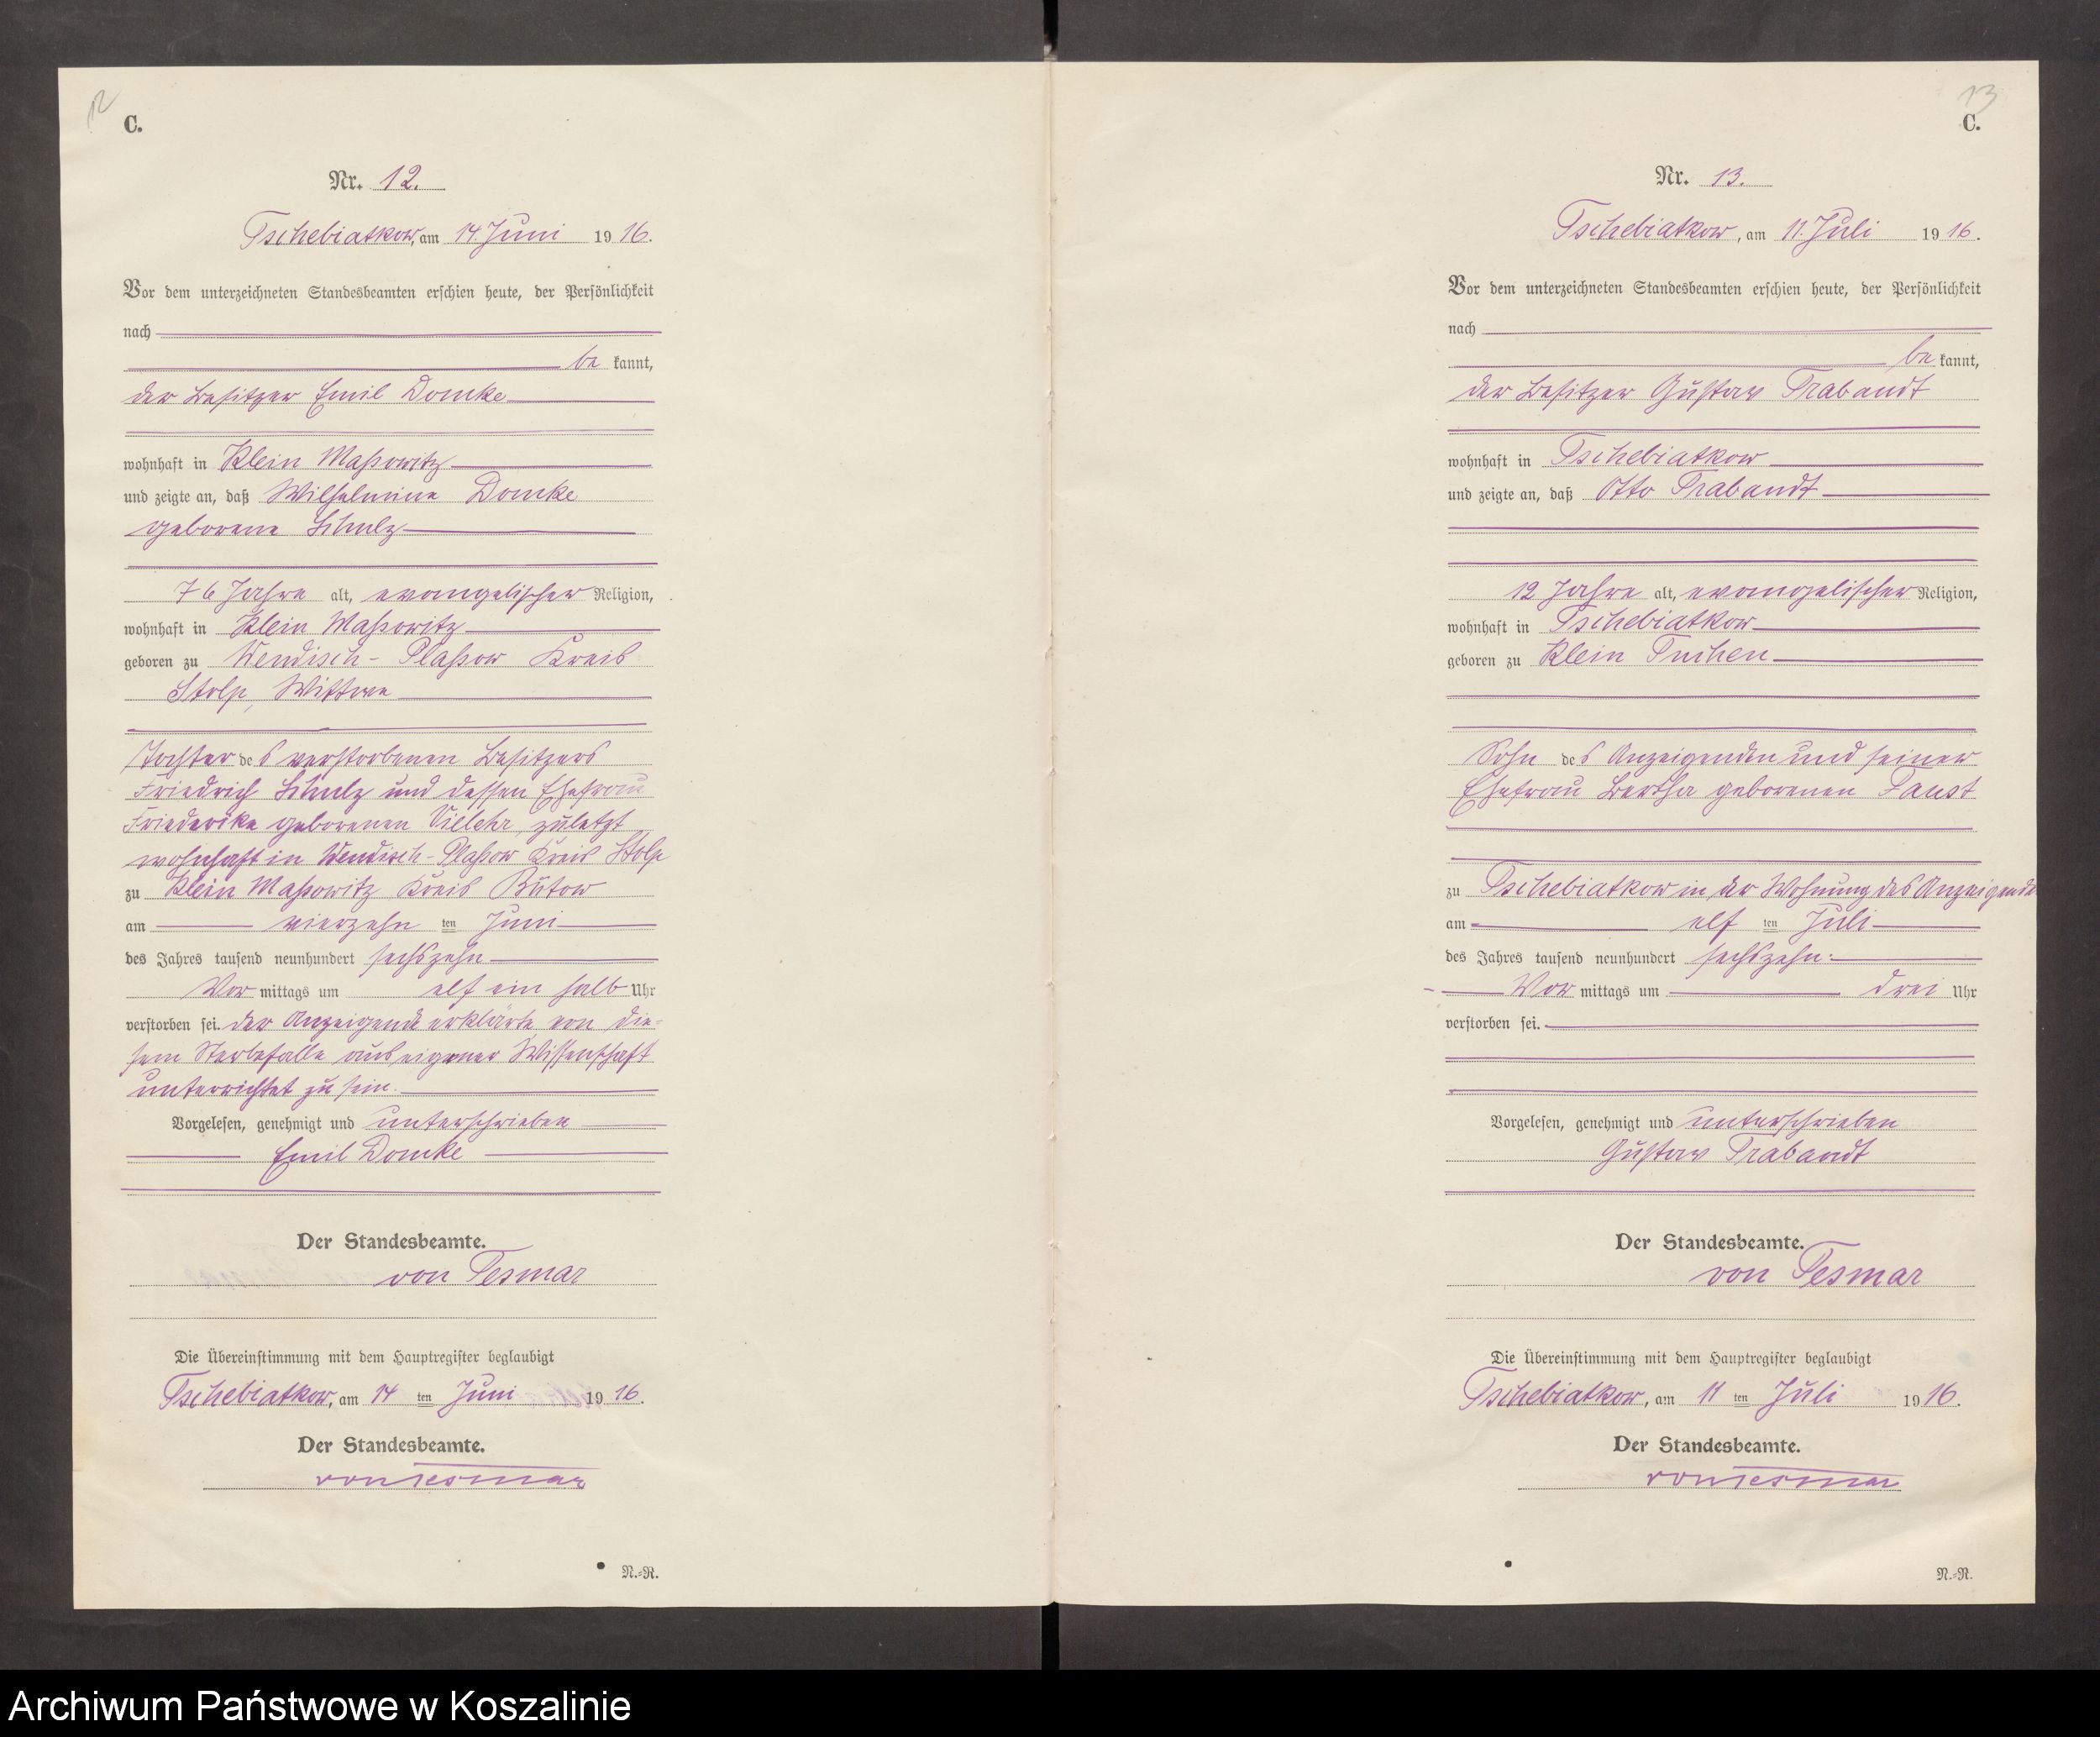 12
C.
Nr. 12.
Tschebiatkow, am 14. Juni 1916.
Vor dem unterzeichneten Standesbeamten erschien heute, der Persönlichkeit
nach
be kannt,
der Besitzer Emil Domke
wohnhaft in Klein Maßowitz
und zeigte an, daß Wilhelmine Domke
geborene Schulz
76 Jahre alt, evangelischer Religion,
wohnhaft in Klein Maßowitz
geboren zu Wendisch-Plaßow Kreis
Stolp, Wittwe
Tochter des verstorbenen Besitzers
Friedrich Schulz und dessen Ehefrau
Friederike geborenen Vielehr, zuletzt
wohnhaft in Wendisch-Plaßow Kreis Stolp
zu Klein Maßowitz Kreis Bütow
am vierzehn ten Juni
des Jahres tausend neunhundert sechszehn
Vor mittags um elf ein halb Uhr
verstorben sei. Der Anzeigende erklärte, von die-
sem Sterbefalle aus eigener Wissenschaft
unterrichtet zu sein.
Vorgelesen, genehmigt und unterschrieben
Emil Domke
Der Standesbeamte.
von Tesmar
Die Übereinstimmung mit dem Hauptregister beglaubigt
Tschebiatkow, am 14 ten Juni 1916.
Der Standesbeamte.
von Tesmar
N.=R.
13
C.
Nr. 13.
Tschebiatkow, am 11. Juli 1916.
Vor dem unterzeichneten Standesbeamten erschien heute, der Persönlichkeit
nach
be kannt,
der Besitzer Gustav Trabandt
wohnhaft in Tschebiatkow
und zeigte an, daß Otto Trabandt
12 Jahre alt, evangelischer Religion,
wohnhaft in Tschebiatkow
geboren zu Klein Tuchen
Sohn des Anzeigenden und seiner
Ehefrau Bertha geborenen Faust
zu Tschebiatkow in der Wohnung des Anzeigenden
am elf ten Juli
des Jahres tausend neunhundert sechszehn
Vor mittags um drei Uhr
verstorben sei.
Vorgelesen, genehmigt und unterschrieben
Gustav Trabandt
Der Standesbeamte.
von Tesmar
Die Übereinstimmung mit dem Hauptregister beglaubigt
Tschebiatkow, am 11 ten Juli 1916.
Der Standesbeamte.
von Tesmar
N.=R.
Archiwum Państwowe w Koszalinie